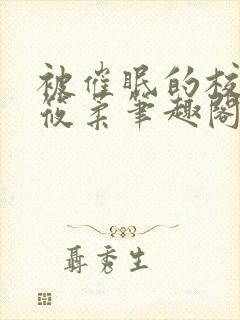 被催眠的校
筱柔笔趣阁
聂秀生